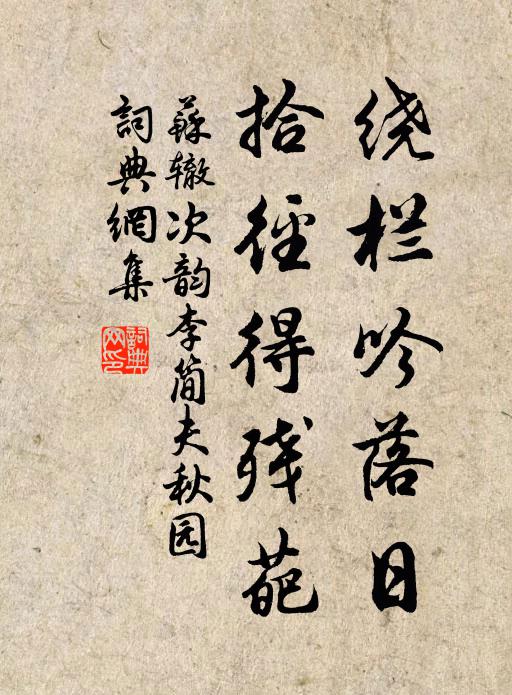 绕栏吟落日
拾径得残葩
蘇辙次韵李简夫秋园
詞典網集
詞典网印